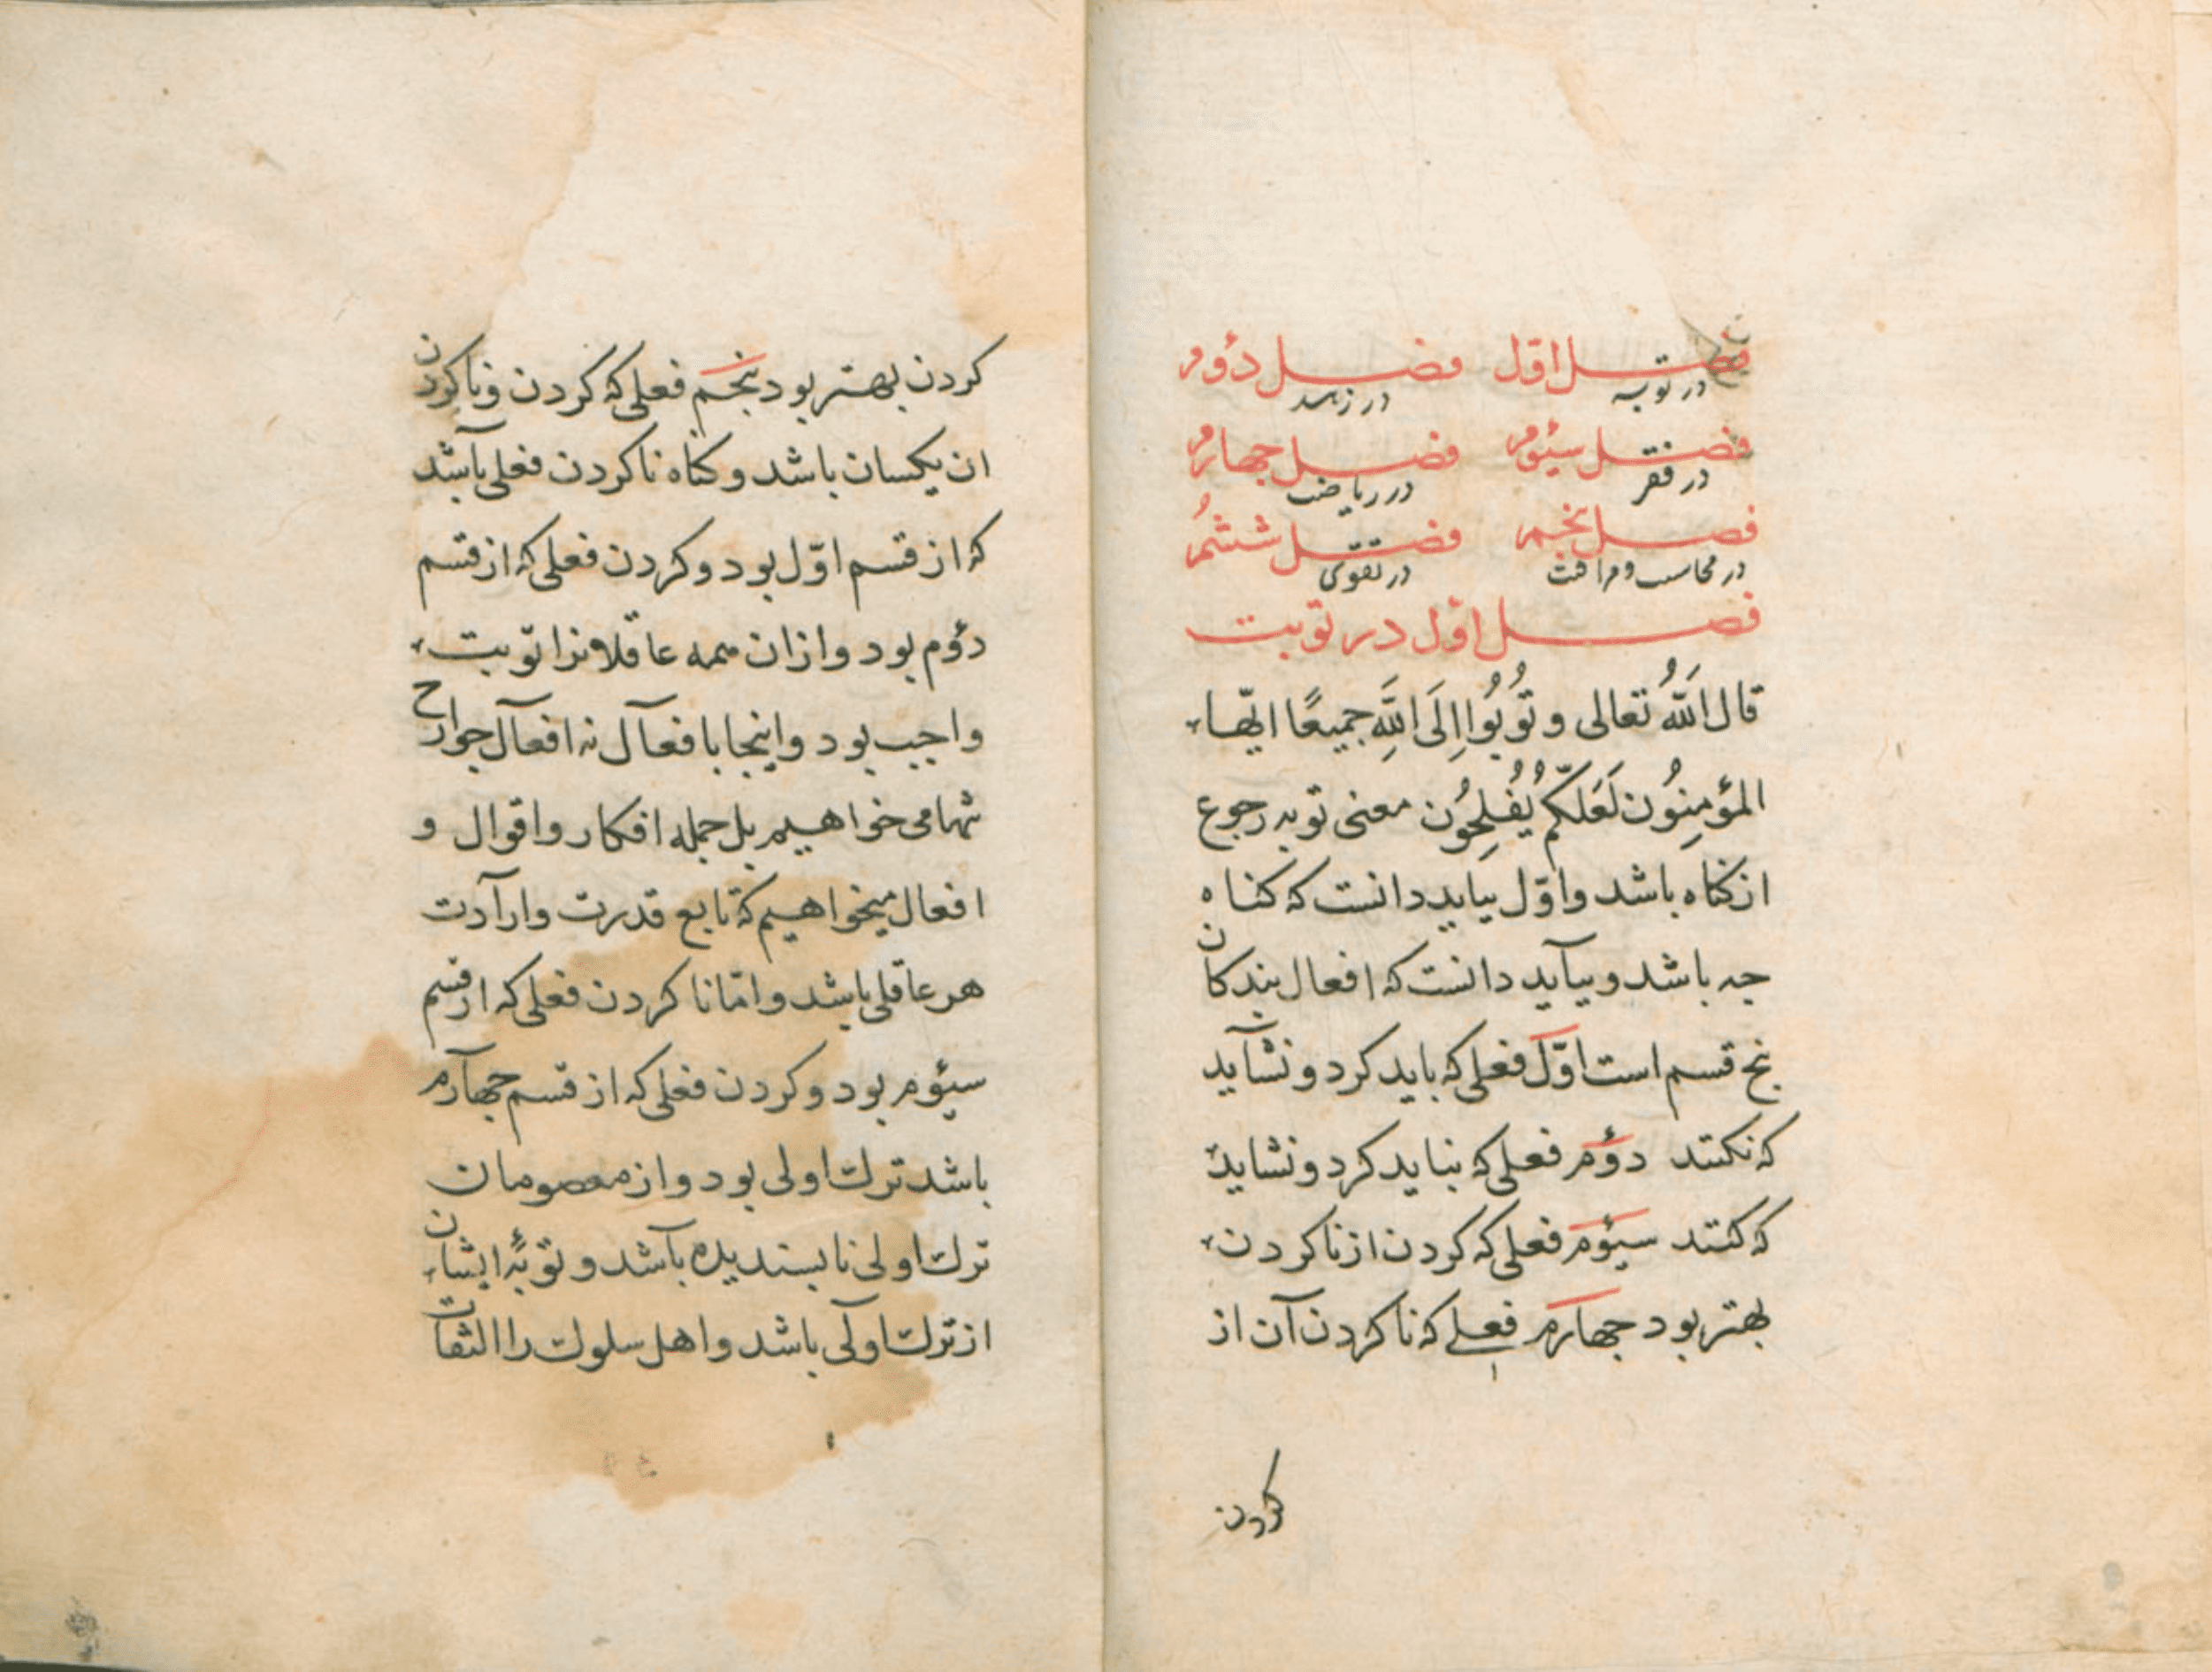 فصل اوّل فصل دوم
در توبه در زهد
فصل سیوم فصل جهارم
در فقر در ریاضت
فصل پنجم فصل ششم
در محاسبت و مراقبت در تقوی
فصل اوّل در توبت
قال اللهُ تعالی و تُوبُوا اِلَی اللهِ جمیعًا ایّها
المؤمِنُون لَعَلّکُم تُفْلِحُون معنی توبه رجوع
از کناه باشد و اوّل بباید دانست که کناه
جه باشد و بباید دانست که افعال بندکان
پنج قسم است اوّل فعلی که باید کرد و نشاید
که نکنند دوم فعلی که نباید کرد و نشاید
که کنند سیوم فعلی که کردن از ناکردن
بهتر بود جهارم فعلی که ناکردن آن از
کردن
کردن بهتر بود پنجم فعلی که کردن و ناکردن
ان یکسان باشد و کناه ناکردن فعلی باشد
که از قسم اوّل بود و کردن فعلی که از قسم
دوم بود و ازان همه عاقلانرا توبت
واجب بود و اینجا بافعال نه افعال جوارح
تنها می خواهیم بل جمله افکار و اقوال و
افعال میخواهیم که تابع قدرت و ارادت
هر عاقلی باشد و امّا ناکردن فعلی که از قسم
سیوم بود و کردن فعلی که از قسم جهارم
باشد ترک اولی بود و از معصومان
ترک اولی ناپسندیده باشد و توبهٔ ایشان
از ترک اولی باشد و اهل سلوک را التفات